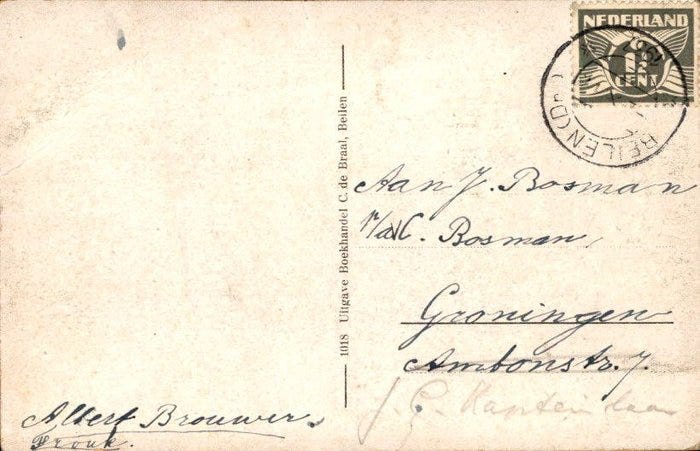 NEDERLAND
1½
CENT
BEILEN (Dr.)
1018 Uitgave Boekhandel C. de Braal, Beilen
Aan J. Bosman
Bosman,
Groningen
Ambonstr. 7.
J. C. Kapteinlaan
Albert Brouwer.